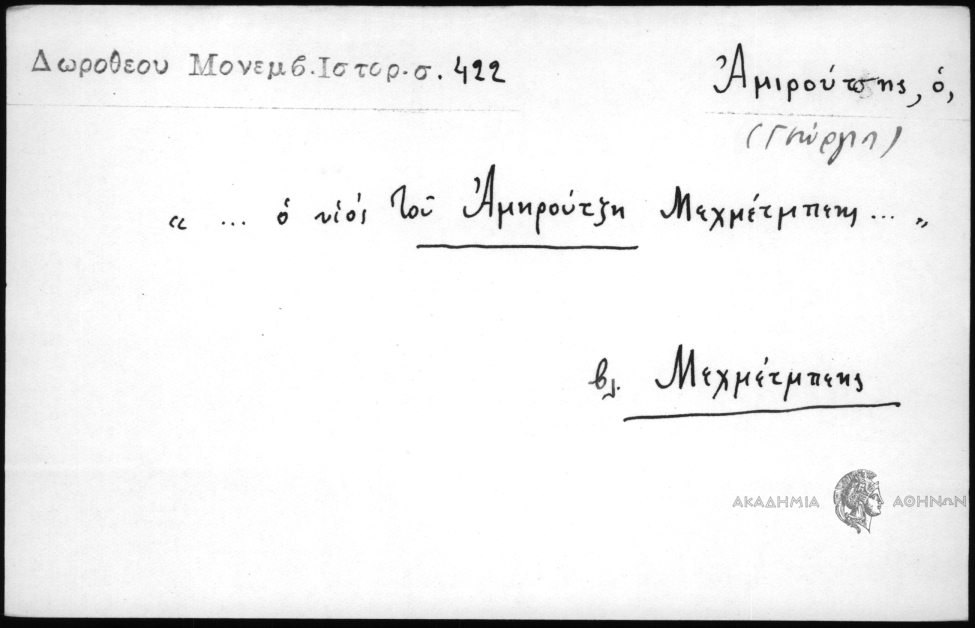 Δωροθεου Μονεμβ.Ιστορ.σ. 422
Ἀμιρούτζης, ὁ,
(Γεώργη)
« ... ὁ υἱός τοῦ Ἀμηρούτζη Μεχμέτμπεης ... »
βλ. Μεχμέτμπεης
ΑΚΑΔΗΜΙΑ ΑΘΗΝΩΝ